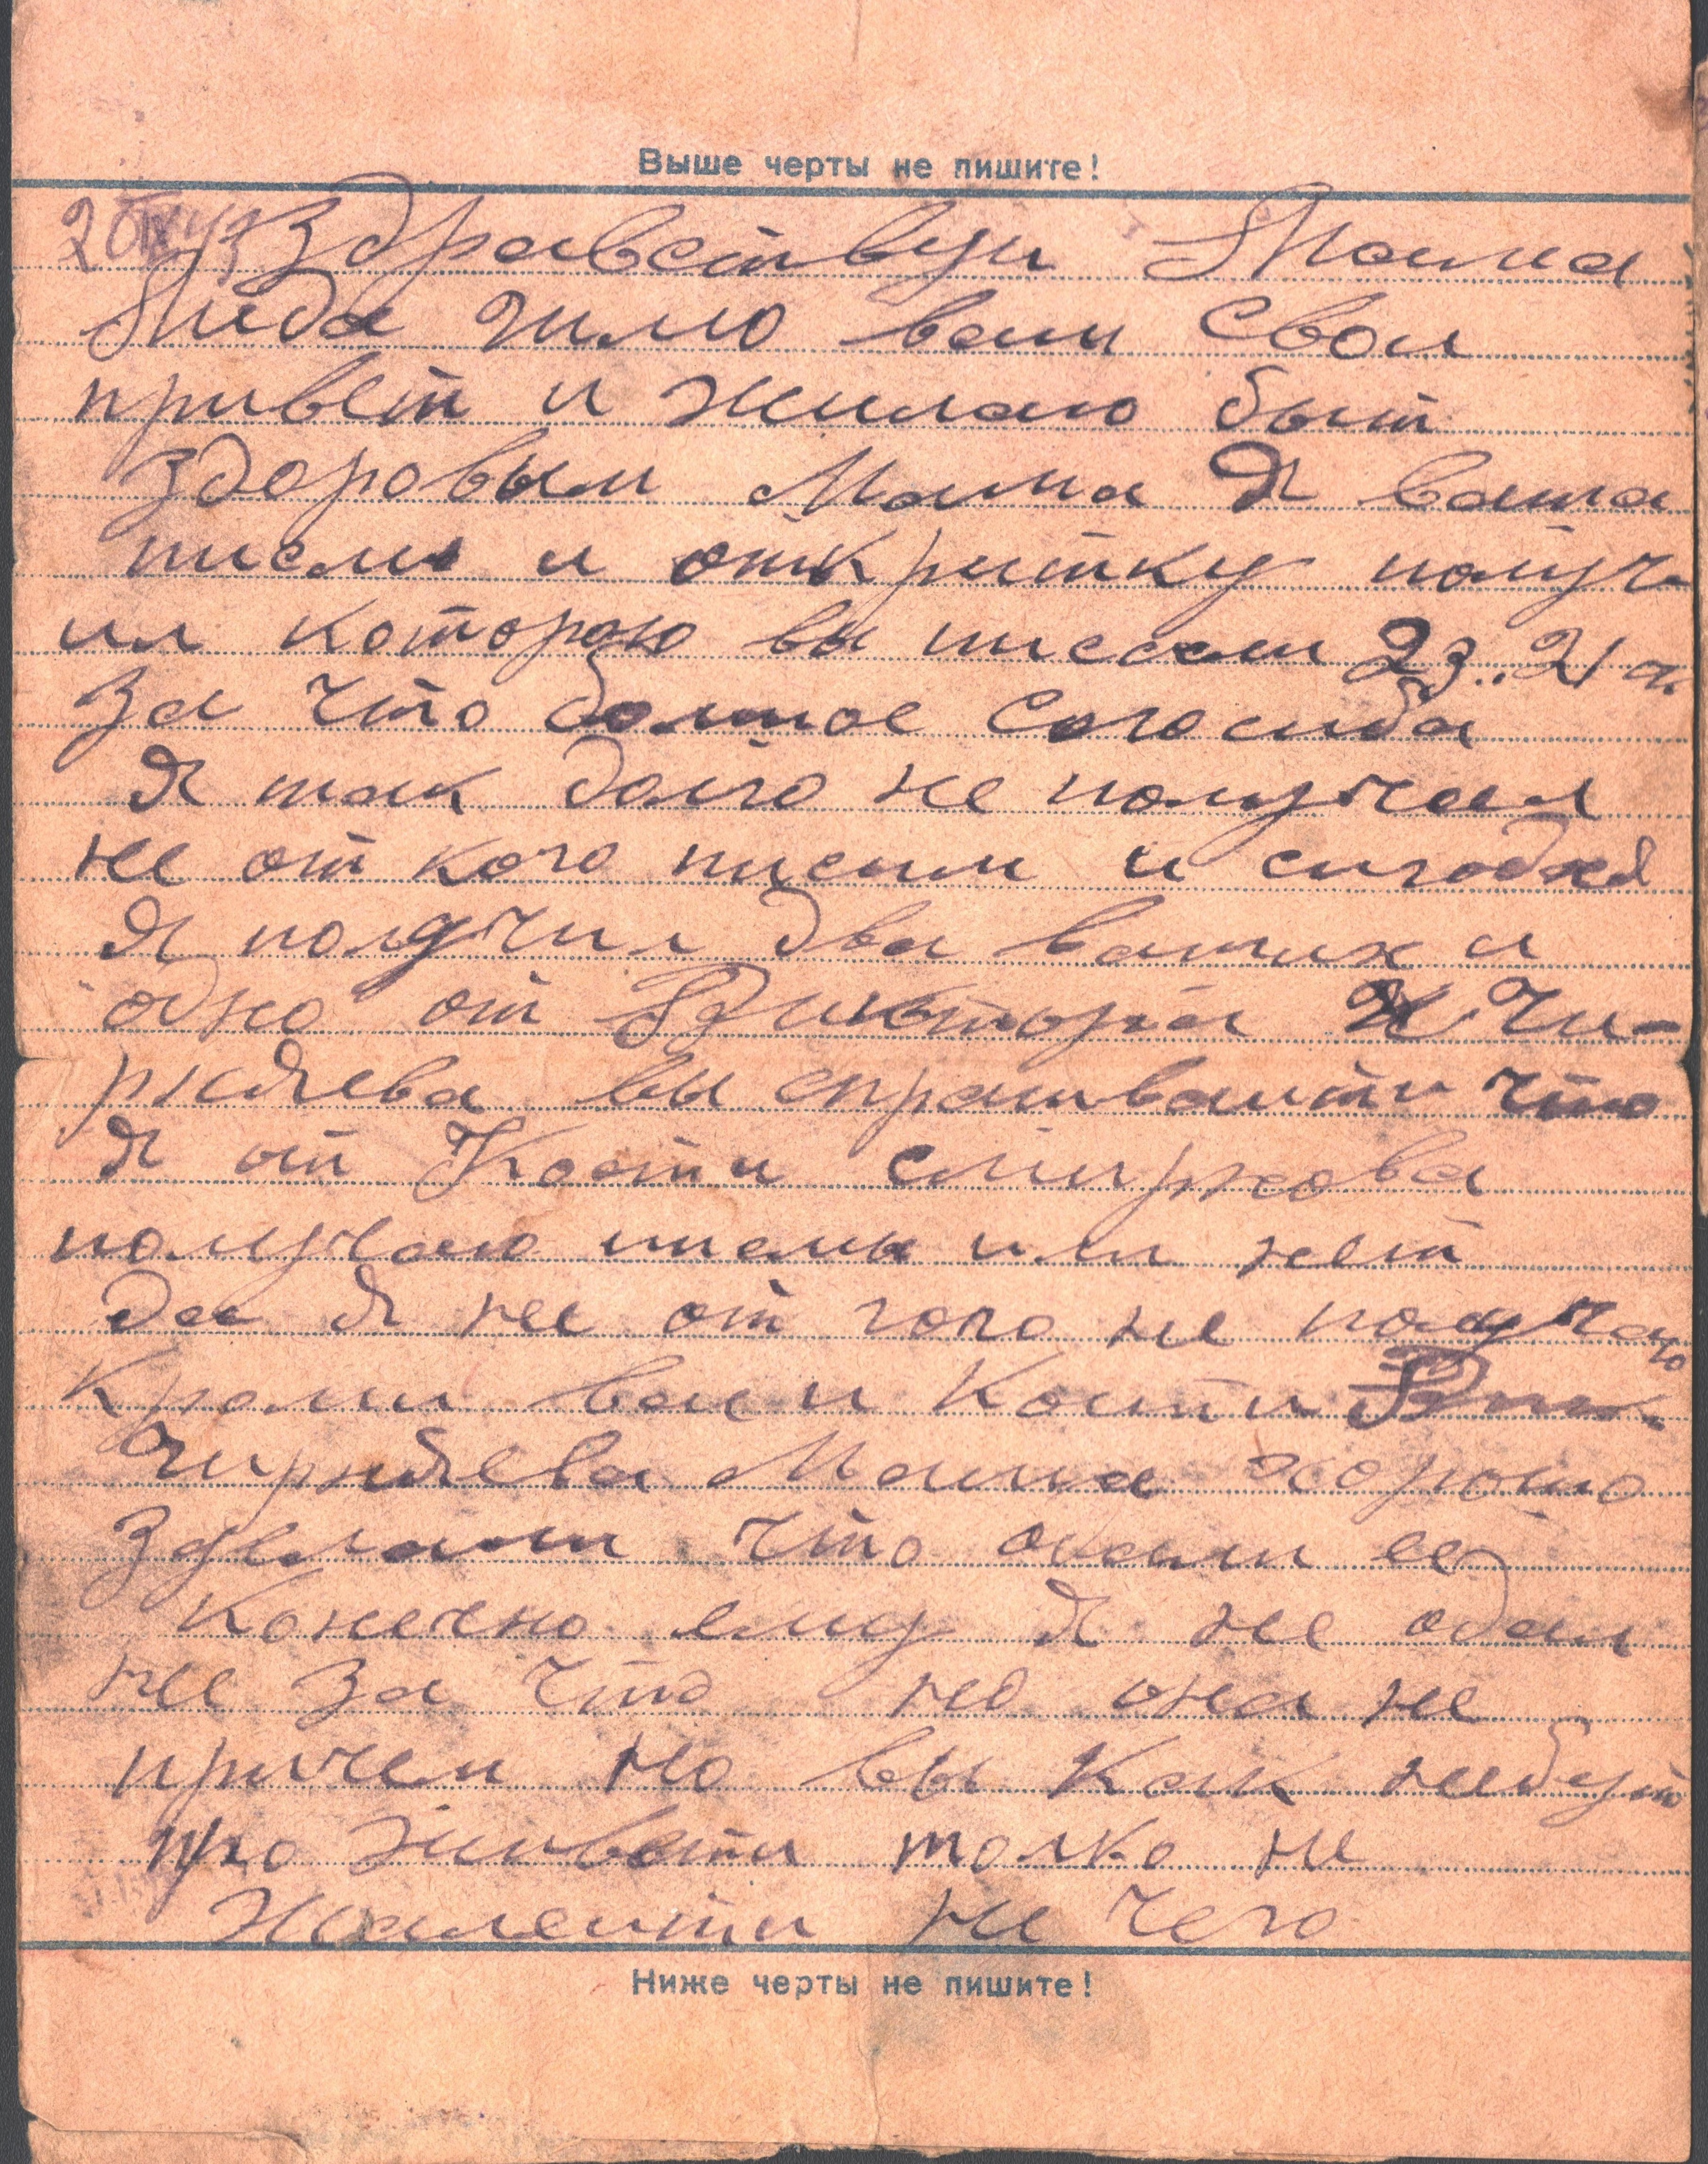 Выше черты не пишите!
Здравствуи Мама
Лида шлю вам свои
привет и жилаю быт
здоровым Мама Я ваша
писмо и открытку получ-
ил которою вы писали 23.. 21 ч.
За что болшое спосиба
Я так долго не получал
не от кого писим и сигодня
Я получил два ваших и
одно от Виктора Чи-
рняева вы спрашиваити что
Я от Кости смирнова
получаю писмы или нет
да Я не от кого не получаю
Кроми вас и Кости
Чирняева Мама хорошо
зделали что одали ее
Конечно ему Я не одал
не за что но она не
причем но вы как нибуть
проживети толко не
жалеити ни чего
Ниже черты не пишите!